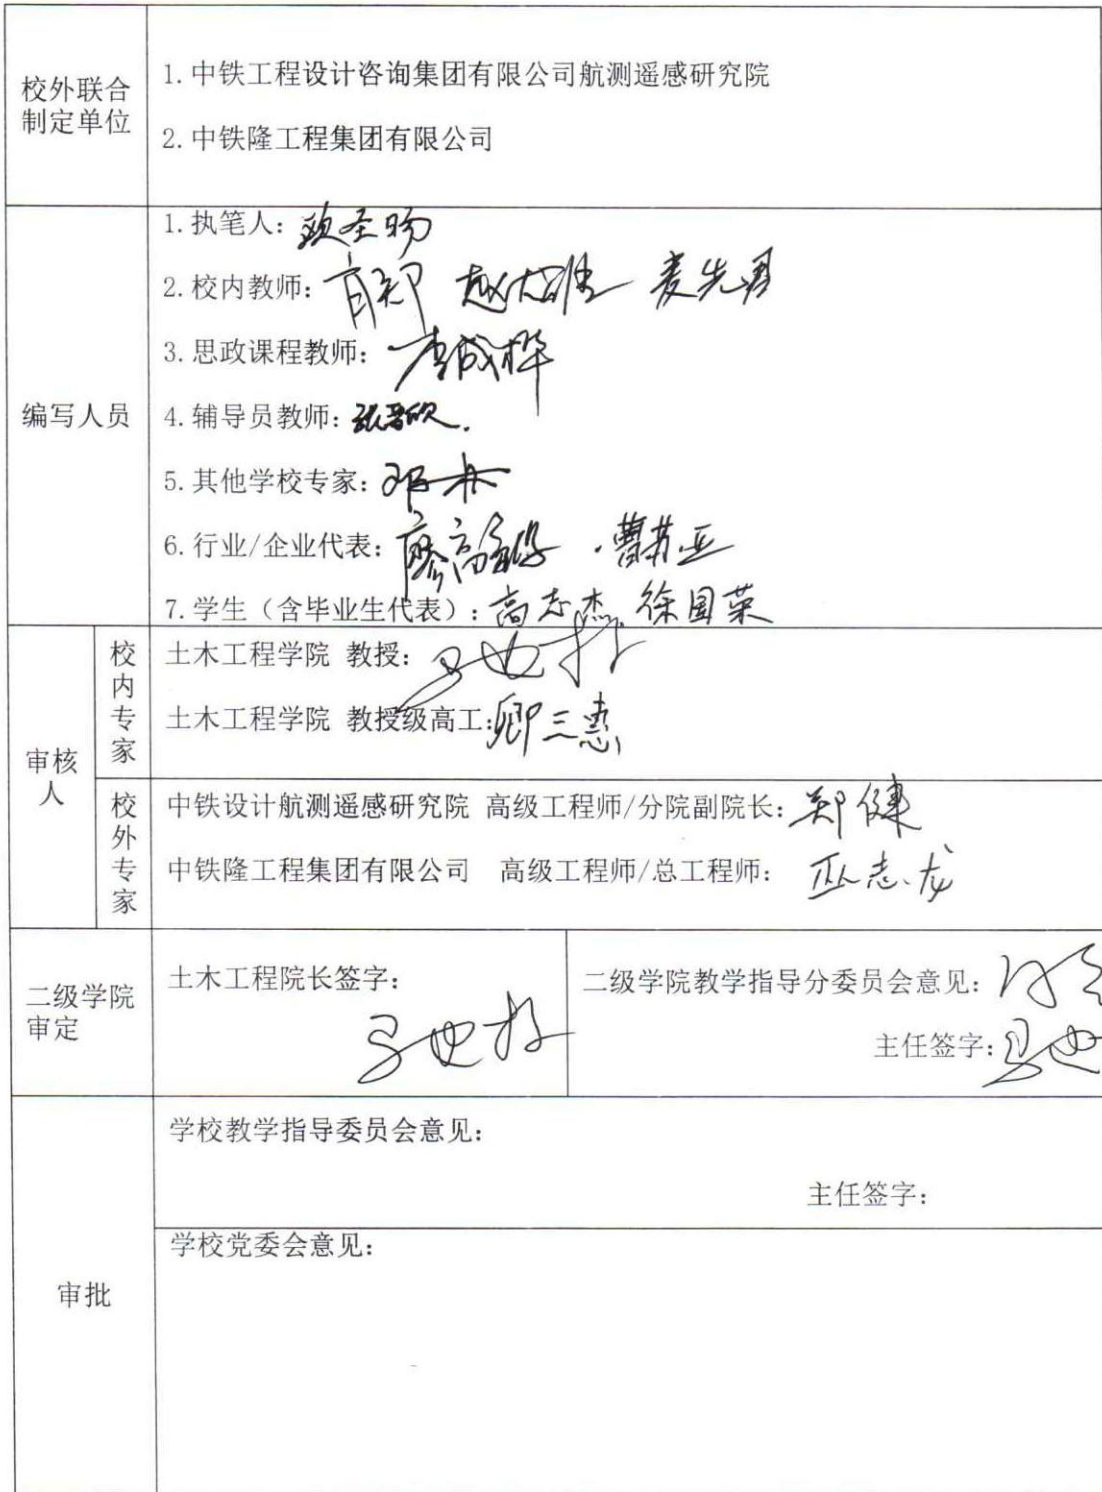 校外联合
制定单位
1.中铁工程设计咨询集团有限公司航测遥感研究院
2.中铁隆工程集团有限公司
编写人员
1.执笔人：欧圣旸
2.校内教师：
3.思政课程教师：李成桦
4.辅导员教师：
5.其他学校专家：邓丹
6.行业/企业代表：曹苏亚
7.学生（含毕业生代表）：高志杰 徐国荣
审核
人
校内专家
土木工程学院 教授：
土木工程学院 教授级高工：卿三惠
校外专家
中铁设计航测遥感研究院 高级工程师/分院副院长：郑健
中铁隆工程集团有限公司 高级工程师/总工程师：巫志龙
二级学院
审定
土木工程院长签字：
二级学院教学指导分委员会意见：
主任签字：
审批
学校教学指导委员会意见：
主任签字：
学校党委会意见：